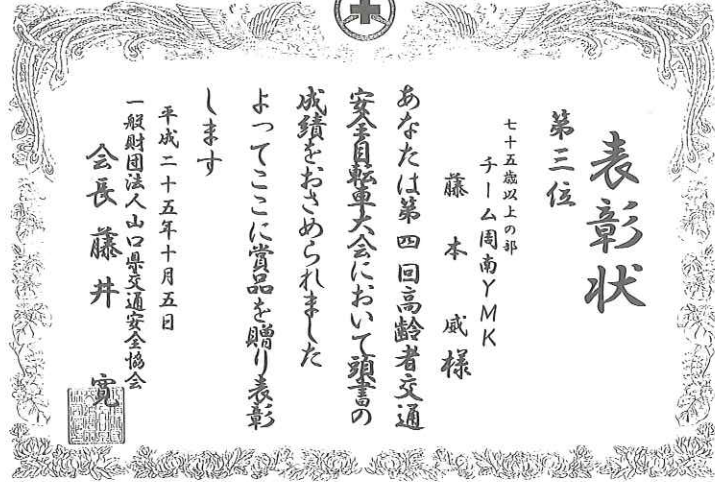 表彰状
第三位
七十五歳以上の部
チーム周南YMK
藤本威様
あなたは第四回高齢者交通
安全自転車大会において頭書の
成績をおさめられました
よってここに賞品を贈り表彰
します
平成二十五年十月五日
一般財団法人山口県交通安全協会
会長藤井寛